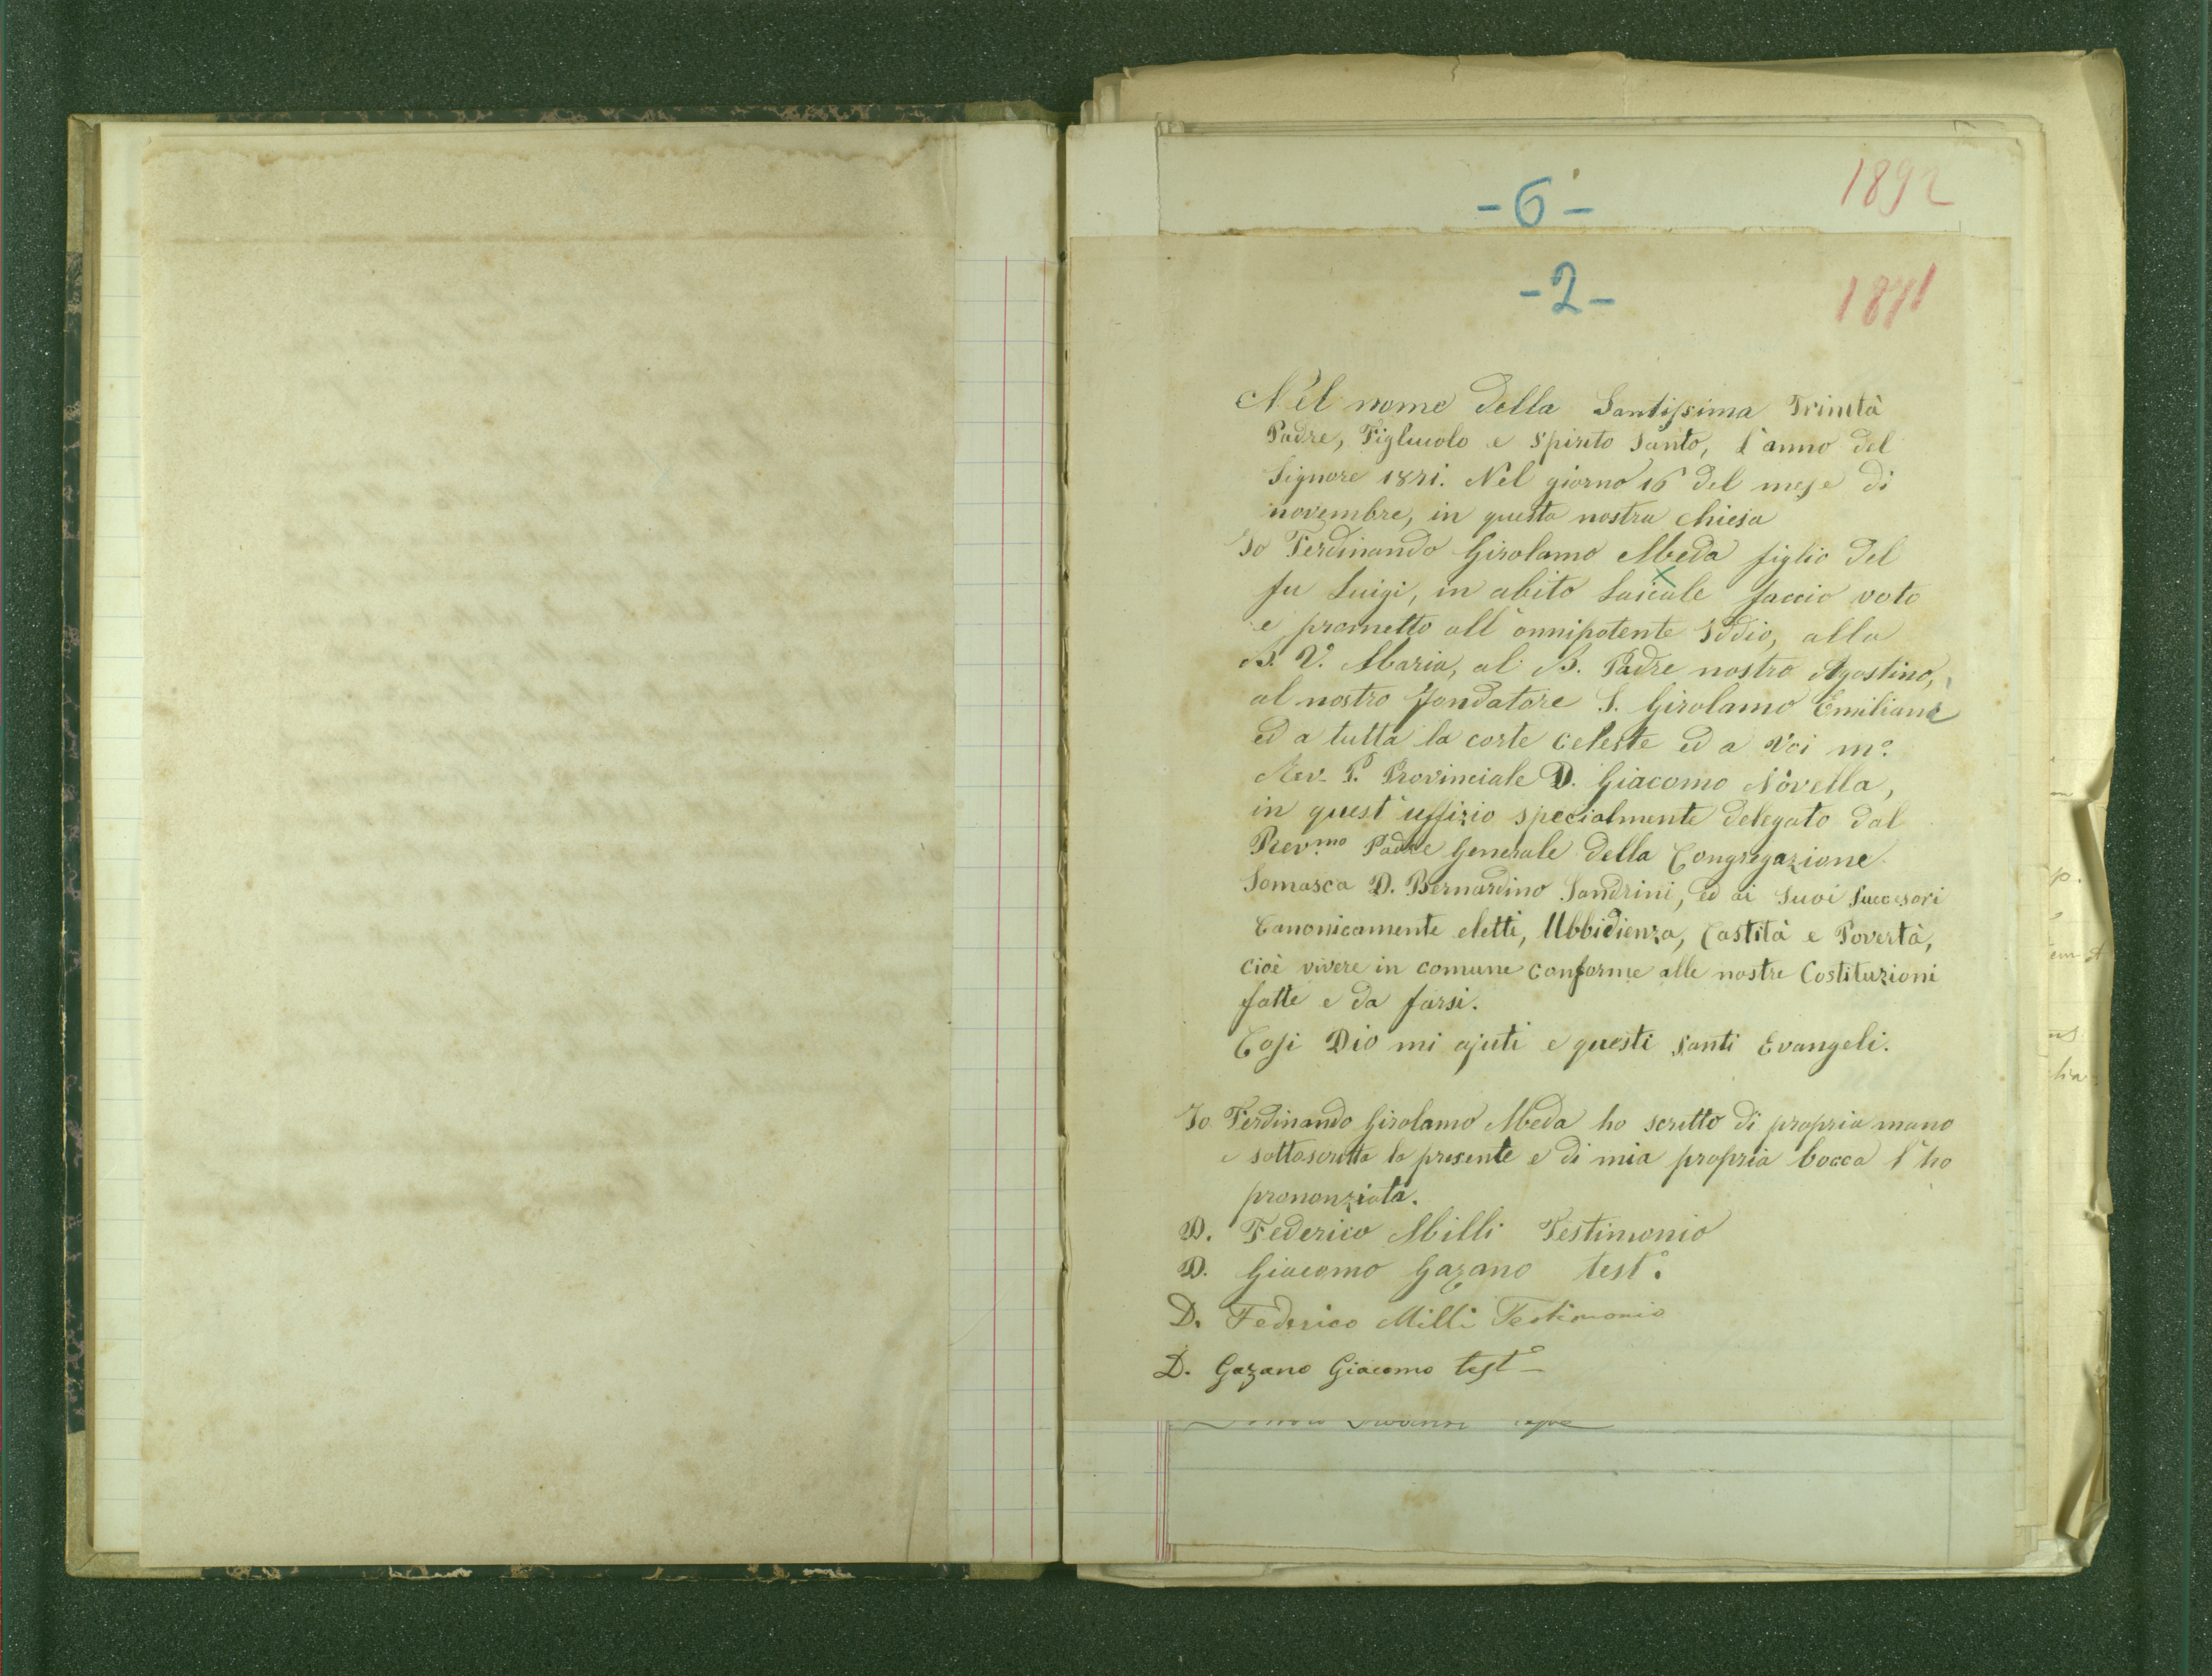 1892
-6-
-2-
1871
Nel nome della Santissima Trinità
Padre, Figliuolo e Spirito Santo, l'anno del
Signore 1871. Nel giorno 16 del mese di
novembre, in questa nostra chiesa
Io Ferdinando Girolamo Meda figlio del
fu Luigi, in abito Laicale faccio voto
e prometto all'onnipotente Iddio, alla
B. V. Maria, al B. Padre nostro Agostino,
al nostro fondatore S. Girolamo Emiliani
ed a tutta la corte celeste ed a Voi m.º
Rev. P. Provinciale D. Giacomo Novella,
in quest'uffizio specialmente delegato dal
Rev.mo Padre Generale della Congregazione
Somasca D. Bernardino Sandrini, ed ai suoi Succesori
Canonicamente eletti, Ubbidienza, Castità e Povertà,
cioè vivere in comune conforme alle nostre Costituzioni
fatte e da farsi.
Cosi Dio mi ajuti e questi santi Evangeli.
Io Ferdinando Girolamo Meda ho scritto di propria mano
e sottoscritta la presente e di mia propria bocca l'ho
prononziata.
D. Federico Milli Testimonio
D. Giacomo Gazano test.º
D. Federico Milli Testimonio
D. Gazano Giacomo testº